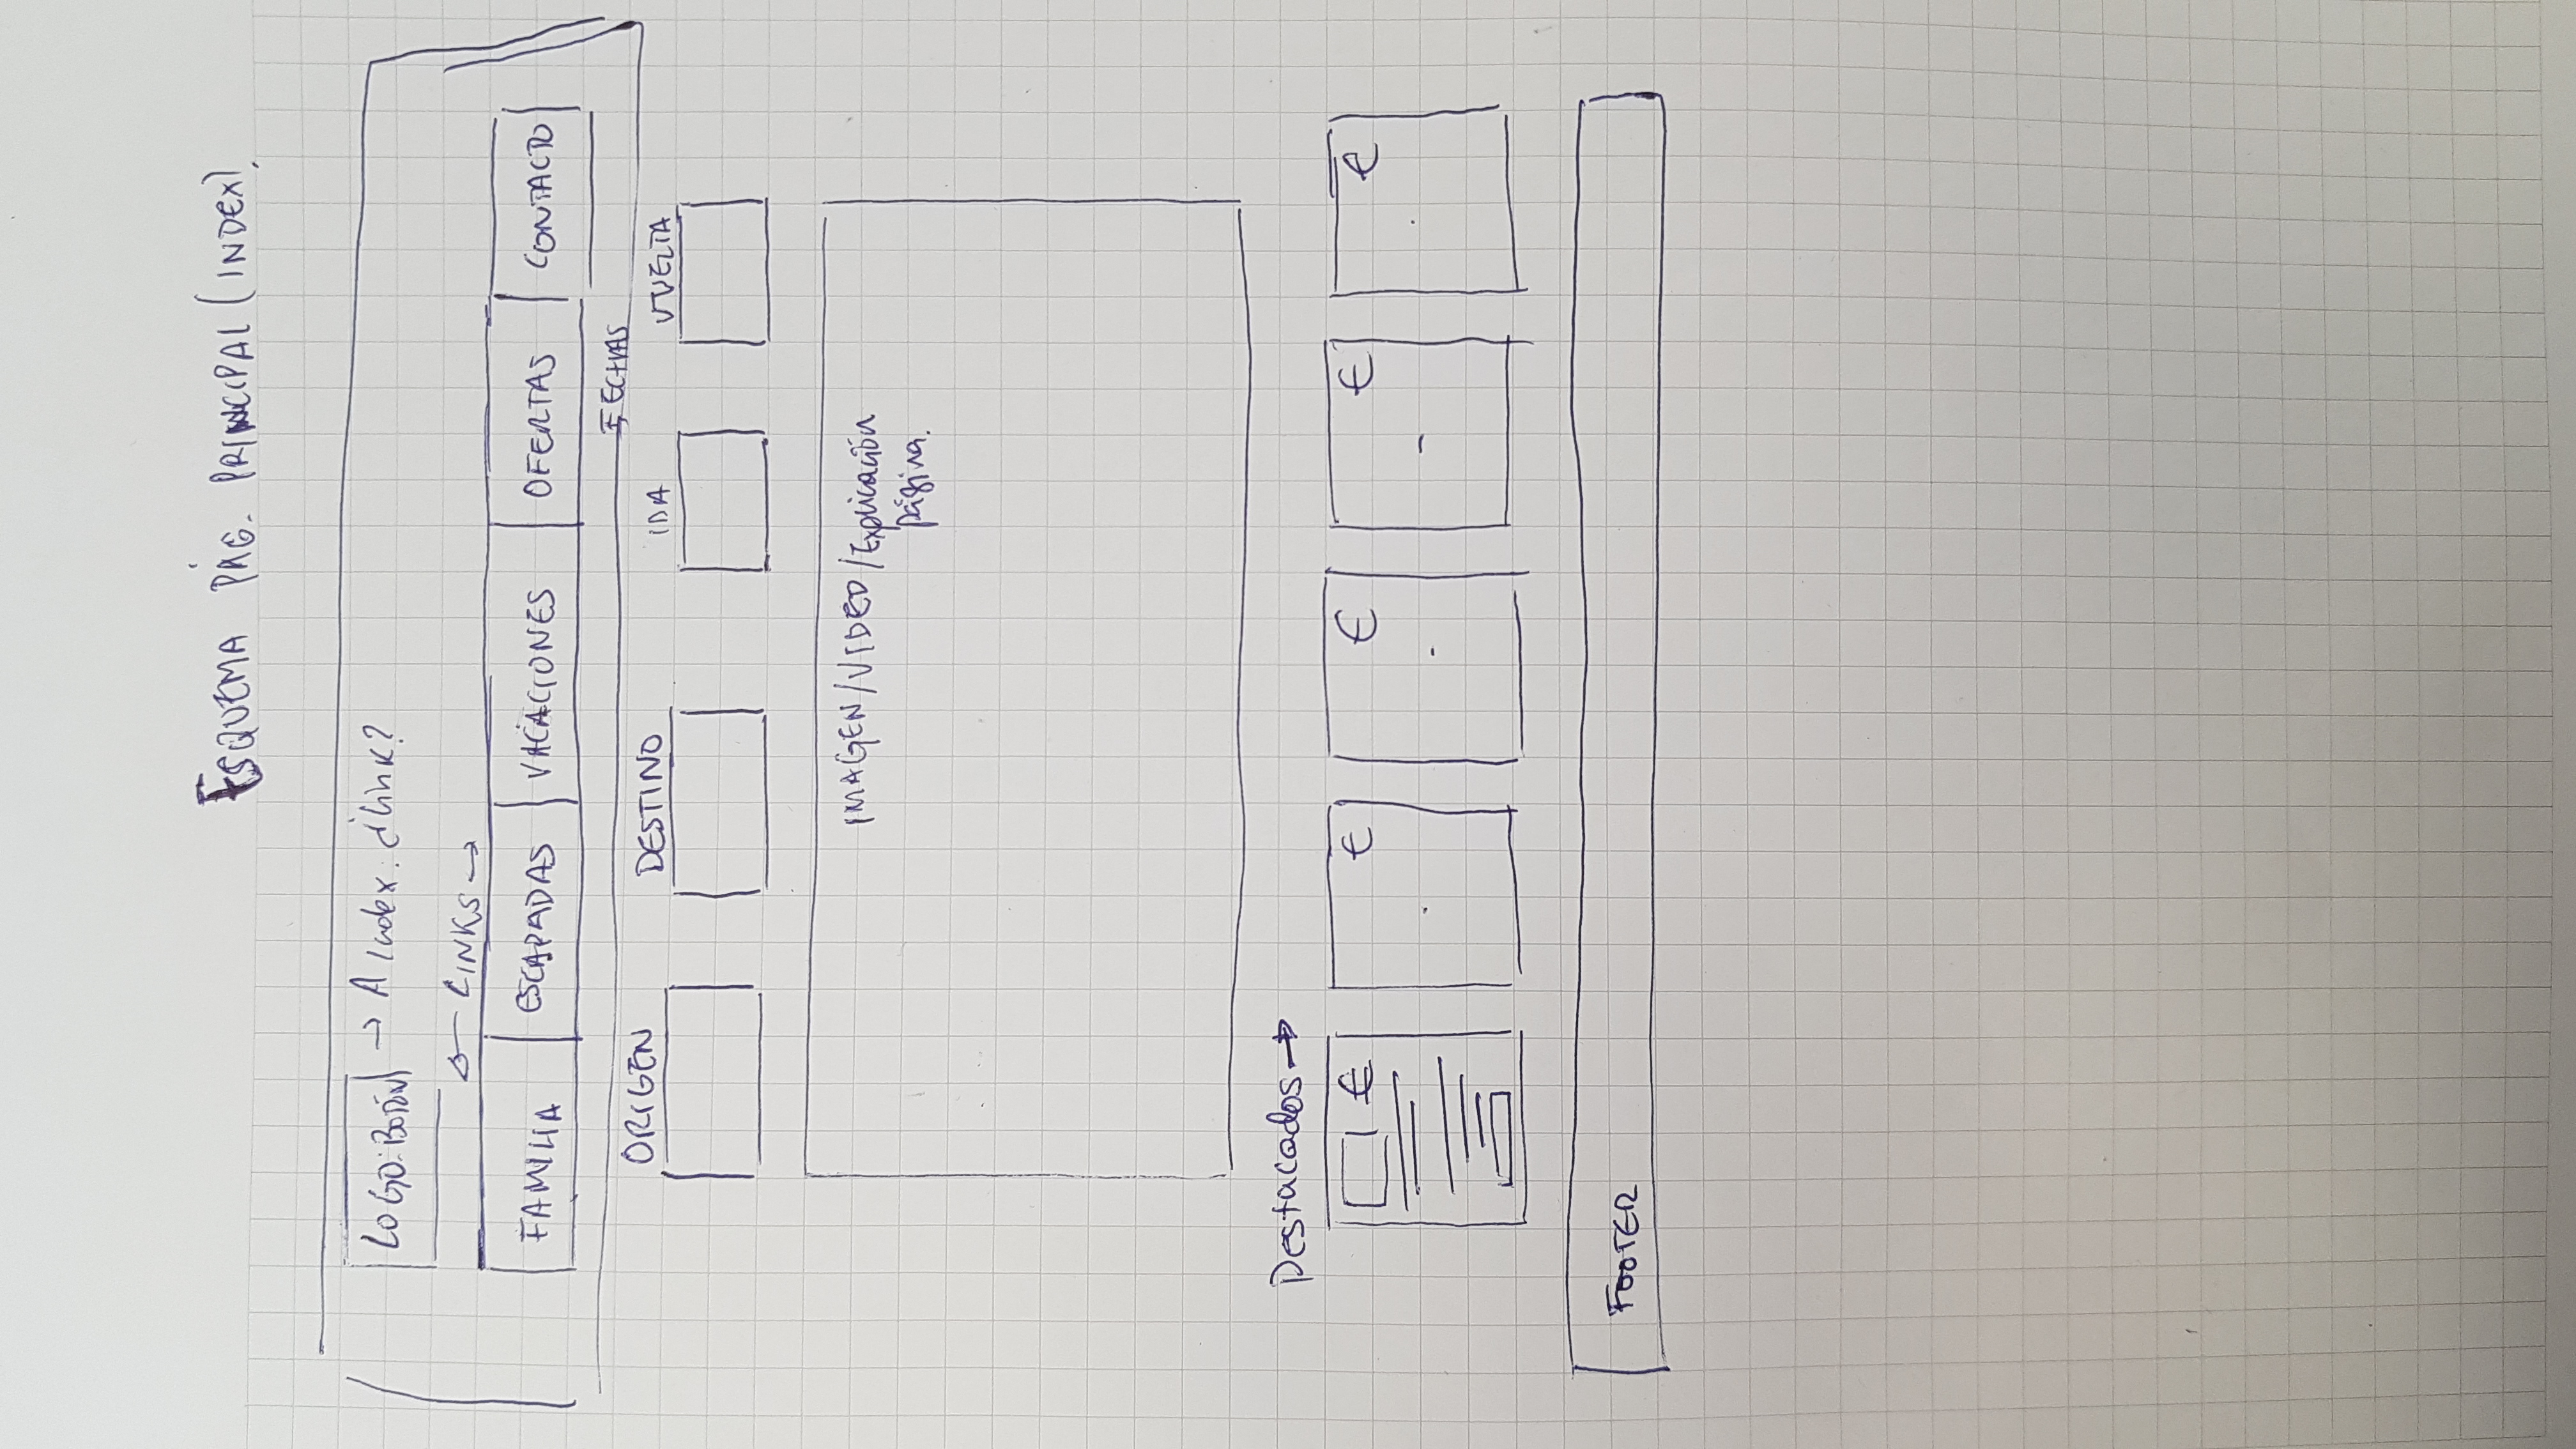 ESQUEMA PÁG. PRINCIPAL (INDEX).
LOGO: BOTÓN → A index. ¿link?
← LINKS →
FAMILIA ESCAPADAS VACACIONES OFERTAS CONTACTO
FECHAS
ORIGEN DESTINO IDA VUELTA
IMAGEN/VIDEO/Explicación
página.
Destacados →
€ € € € €
FOOTER